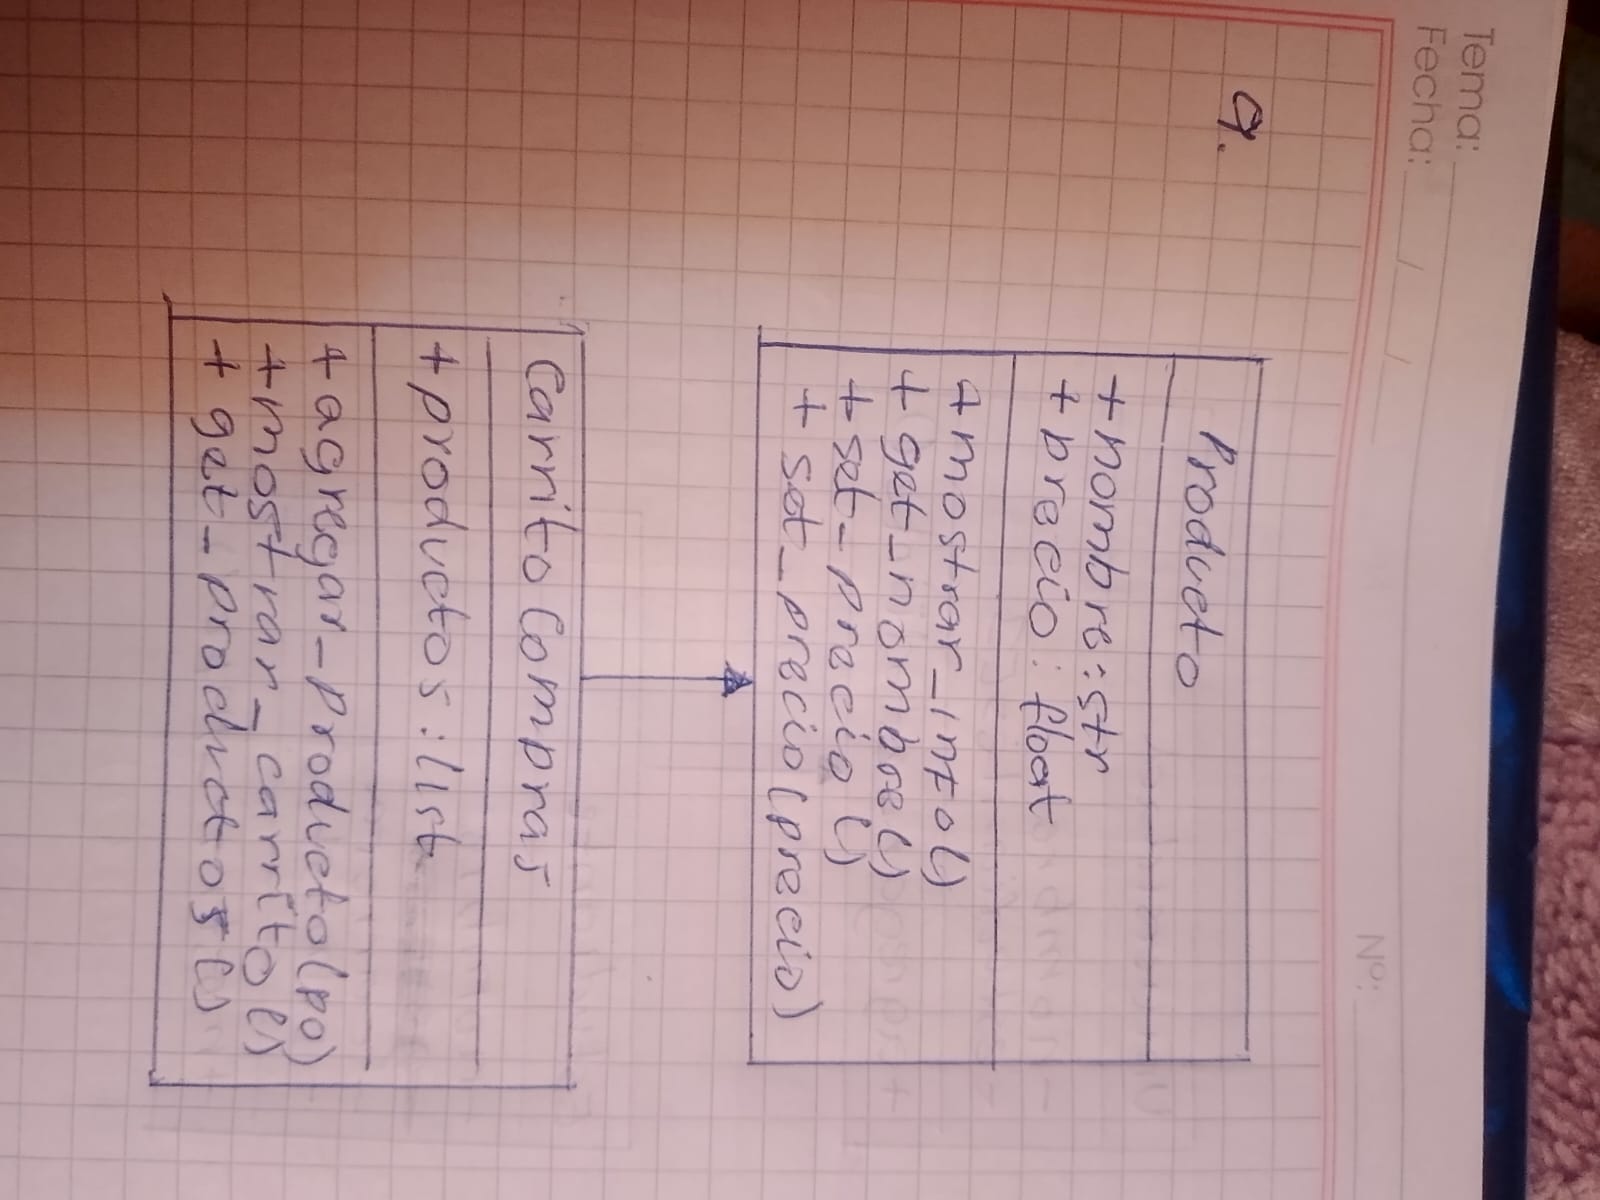 Tema:
Fecha: / /
Nº:
9.
Producto
+ nombre: str
+ precio: float
+ mostrar_info()
+ get_nombre()
+ set_precio()
+ set_precio(precio)
Carrito Compras
+ productos: list
+ agregar_producto(po)
+ mostrar_carrito()
+ get_productos()